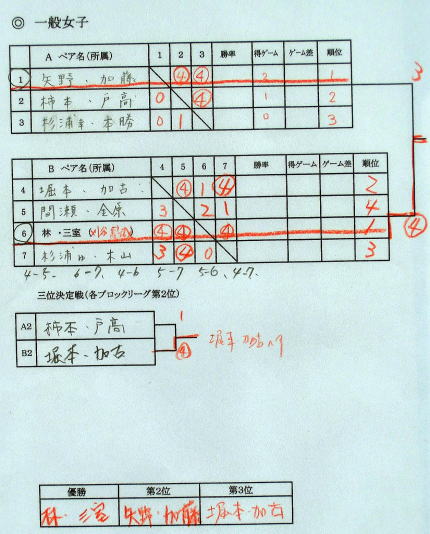 ◎ 一般女子
A ペア名(所属) 1 2 3 勝率 得ゲーム ゲーム差 順位
1 矢野・加藤 ④ ④ 2 1
2 柿本・戸高 0 ④ 1 2
3 杉浦幸・本勝 0 1 0 3
3
B ペア名(所属) 4 5 6 7 勝率 得ゲーム ゲーム差 順位
4 堀本・加古 ⑤ 1 ④ 2
5 間瀬・金原 3 2 1 4
6 林・三室 ④ ④ ④ 1
④
7 杉浦 ・木山 3 ④ 0 3
4-5. 6-7. 4-6 5-7 5-6. 4-7.
三位決定戦(各ブロックリーグ第2位)
A2 柿本・戸高 1
B2 堀本・加古 ④
堀本 加古
優勝 第2位 第3位
林・三室 矢野・加藤 堀本・加古